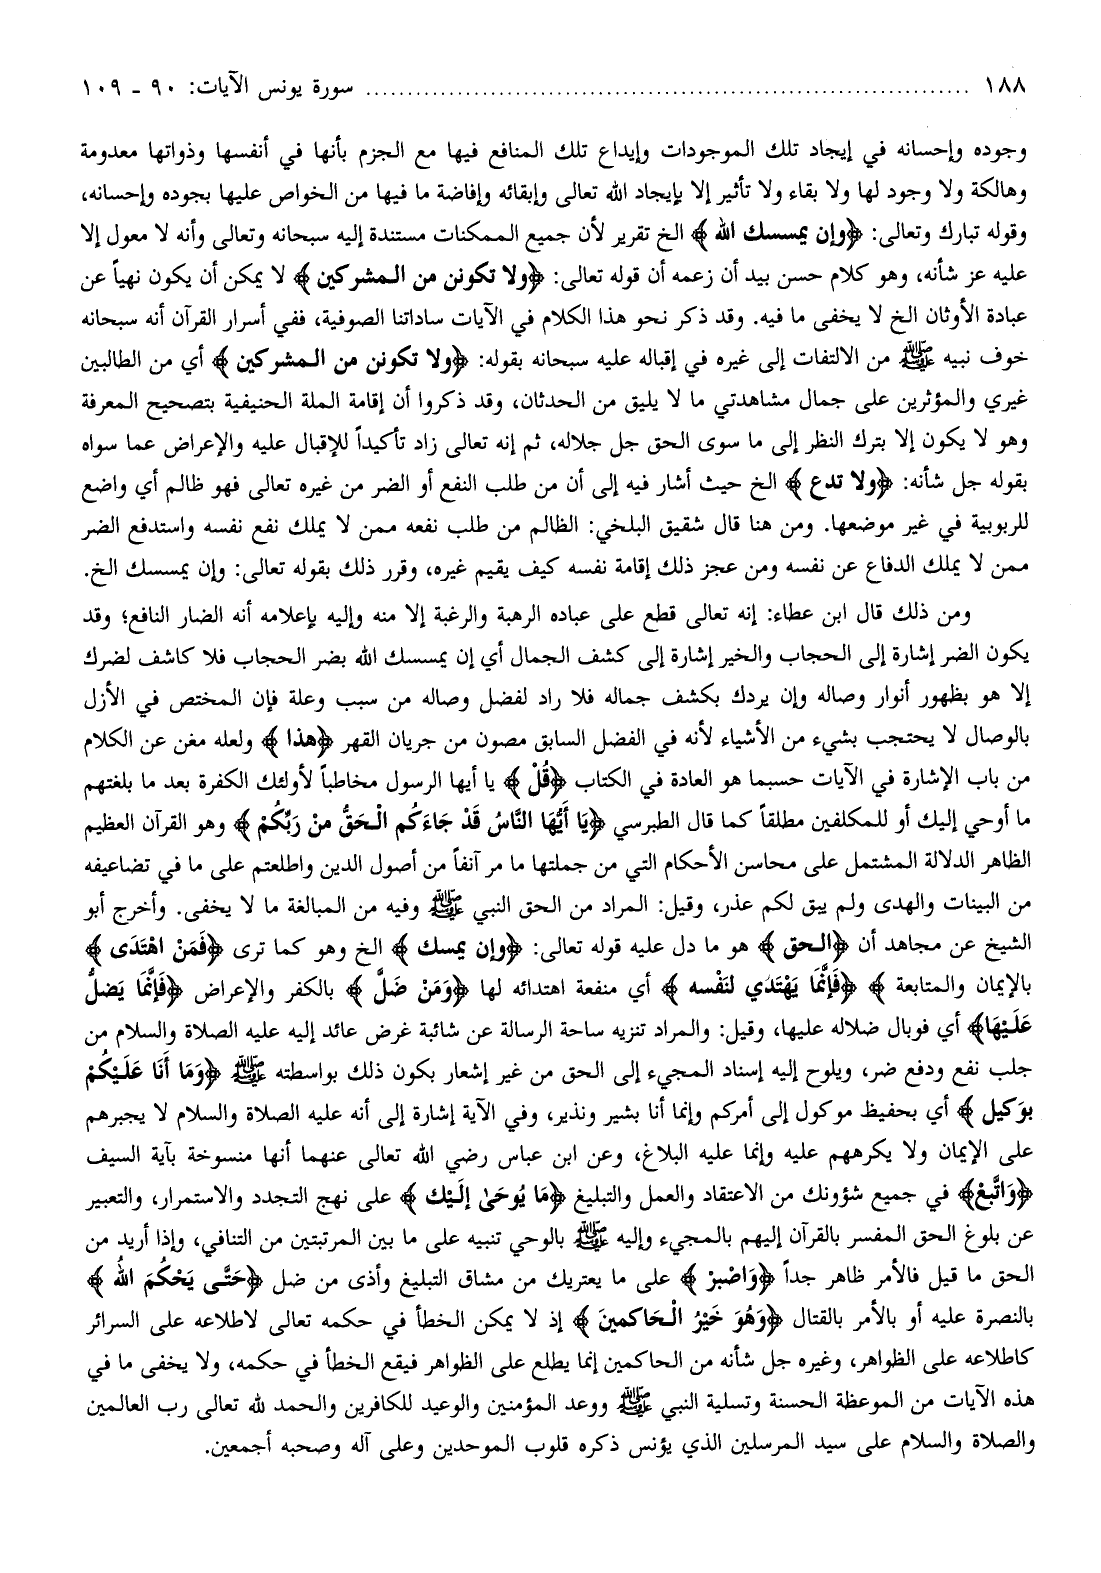 ١٨٨ ........................................................................ سورة يونس الآيات: ٩٠ - ١٠٩
وجوده وإحسانه في إيجاد تلك الموجودات وإيداع تلك المنافع فيها مع الجزم بأنها في أنفسها وذواتها معدومة
وهالكة ولا وجود لها ولا بقاء ولا تأثير إلا بإيجاد الله تعالى وإبقائه وإفاضة ما فيها من الخواص عليها بجوده وإحسانه،
وقوله تبارك وتعالى: ﴿وإن يمسسك الله﴾ الخ تقرير لأن جميع الممكنات مستندة إليه سبحانه وتعالى وأنه لا معول إلا
عليه عز شأنه، وهو كلام حسن بيد أن زعمه أن قوله تعالى: ﴿ولا تكونن من المشركين﴾ لا يمكن أن يكون نهياً عن
عبادة الأوثان الخ لا يخفى ما فيه. وقد ذكر نحو هذا الكلام في الآيات ساداتنا الصوفية، ففي أسرار القرآن أنه سبحانه
خوف نبيه ﷺ من الالتفات إلى غيره في إقباله عليه سبحانه بقوله: ﴿ولا تكونن من المشركين﴾ أي من الطالبين
غيري والمؤثرين على جمال مشاهدتي ما لا يليق من الحدثان، وقد ذكروا أن إقامة الملة الحنيفية بتصحيح المعرفة
وهو لا يكون إلا بترك النظر إلى ما سوى الحق جل جلاله، ثم إنه تعالى زاد تأكيداً للإقبال عليه والإعراض عما سواه
بقوله جل شأنه: ﴿ولا تدع﴾ الخ حيث أشار فيه إلى أن من طلب النفع أو الضر من غيره تعالى فهو ظالم أي واضع
للربوبية في غير موضعها. ومن هنا قال شقيق البلخي: الظالم من طلب نفعه ممن لا يملك نفع نفسه واستدفع الضر
ممن لا يملك الدفاع عن نفسه ومن عجز ذلك إقامة نفسه كيف يقيم غيره، وقرر ذلك بقوله تعالى: وإن يمسسك الخ.
ومن ذلك قال ابن عطاء: إنه تعالى قطع على عباده الرهبة والرغبة إلا منه وإليه بإعلامه أنه الضار النافع؛ وقد
يكون الضر إشارة إلى الحجاب والخير إشارة إلى كشف الجمال أي إن يمسسك الله بضر الحجاب فلا كاشف لضرك
إلا هو بظهور أنوار وصاله وإن يردك بكشف جماله فلا راد لفضل وصاله من سبب وعلة فإن المختص في الأزل
بالوصال لا يحتجب بشيء من الأشياء لأنه في الفضل السابق مصون من جريان القهر ﴿هذا﴾ ولعله مغن عن الكلام
من باب الإشارة في الآيات حسبما هو العادة في الكتاب ﴿قُلْ﴾ يا أيها الرسول مخاطباً لأولئك الكفرة بعد ما بلغتهم
ما أوحي إليك أو للمكلفين مطلقاً كما قال الطبرسي ﴿يَا أَيُّهَا النَّاسُ قَدْ جَاءَكُم الْحَقُّ منْ رَبِّكُمْ﴾ وهو القرآن العظيم
الظاهر الدلالة المشتمل على محاسن الأحكام التي من جملتها ما مر آنفاً من أصول الدين واطلعتم على ما في تضاعيفه
من البينات والهدى ولم يبق لكم عذر، وقيل: المراد من الحق النبي ﷺ وفيه من المبالغة ما لا يخفى. وأخرج أبو
الشيخ عن مجاهد أن ﴿الحق﴾ هو ما دل عليه قوله تعالى: ﴿وإن يمسك﴾ الخ وهو كما ترى ﴿فَمَنْ اهْتَدَى﴾
بالإيمان والمتابعة ﴾ ﴿فَإِنَّمَا يَهْتَدي لنَفْسه﴾ أي منفعة اهتدائه لها ﴿وَمَنْ ضَلَّ﴾ بالكفر والإعراض ﴿فَإِنَّمَا يَضلُّ
عَلَيْهَا﴾ أي فوبال ضلاله عليها، وقيل: والمراد تنزيه ساحة الرسالة عن شائبة غرض عائد إليه عليه الصلاة والسلام من
جلب نفع ودفع ضر، ويلوح إليه إسناد المجيء إلى الحق من غير إشعار بكون ذلك بواسطته ﷺ ﴿وَمَا أَنَا عَلَيْكُمْ
بوَكيل﴾ أي بحفيظ موكول إلى أمركم وإنما أنا بشير ونذير، وفي الآية إشارة إلى أنه عليه الصلاة والسلام لا يجبرهم
على الإيمان ولا يكرههم عليه وإنما عليه البلاغ، وعن ابن عباس رضي الله تعالى عنهما أنها منسوخة بآية السيف
﴿وَاتَّبعْ﴾ في جميع شؤونك من الاعتقاد والعمل والتبليغ ﴿مَا يُوحَىٰ إلَيْك﴾ على نهج التجدد والاستمرار، والتعبير
عن بلوغ الحق المفسر بالقرآن إليهم بالمجيء وإليه ﷺ بالوحي تنبيه على ما بين المرتبتين من التنافي، وإذا أريد من
الحق ما قيل فالأمر ظاهر جداً ﴿وَاصْبرْ﴾ على ما يعتريك من مشاق التبليغ وأذى من ضل ﴿حَتَّى يَحْكُمَ اللَّهُ﴾
بالنصرة عليه أو بالأمر بالقتال ﴿وَهُوَ خَيْرُ الْحَاكمينَ﴾ إذ لا يمكن الخطأ في حكمه تعالى لاطلاعه على السرائر
كاطلاعه على الظواهر، وغيره جل شأنه من الحاكمين إنما يطلع على الظواهر فيقع الخطأ في حكمه، ولا يخفى ما في
هذه الآيات من الموعظة الحسنة وتسلية النبي ﷺ ووعد المؤمنين والوعيد للكافرين والحمد لله تعالى رب العالمين
والصلاة والسلام على سيد المرسلين الذي يؤنس ذكره قلوب الموحدين وعلى آله وصحبه أجمعين.